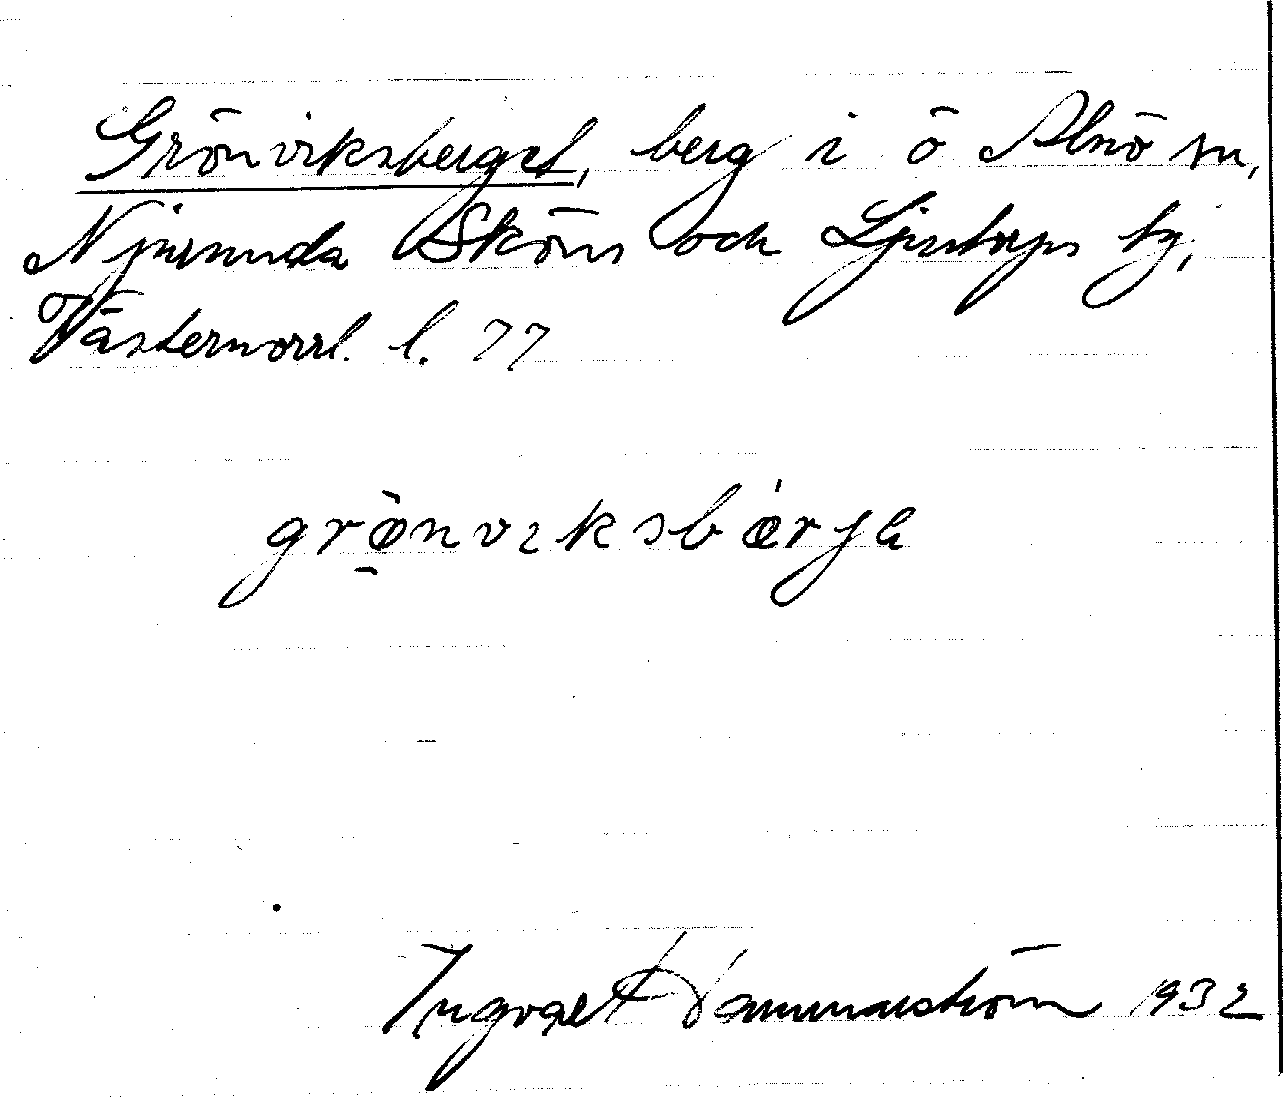 Grönviksberget, berg i ö Alnö sn,
Njurunda Sköns och Ljustorps tg,
Västernorrl. l. 77
grö̀nviksbærja
Ingvald Hammarström 1932